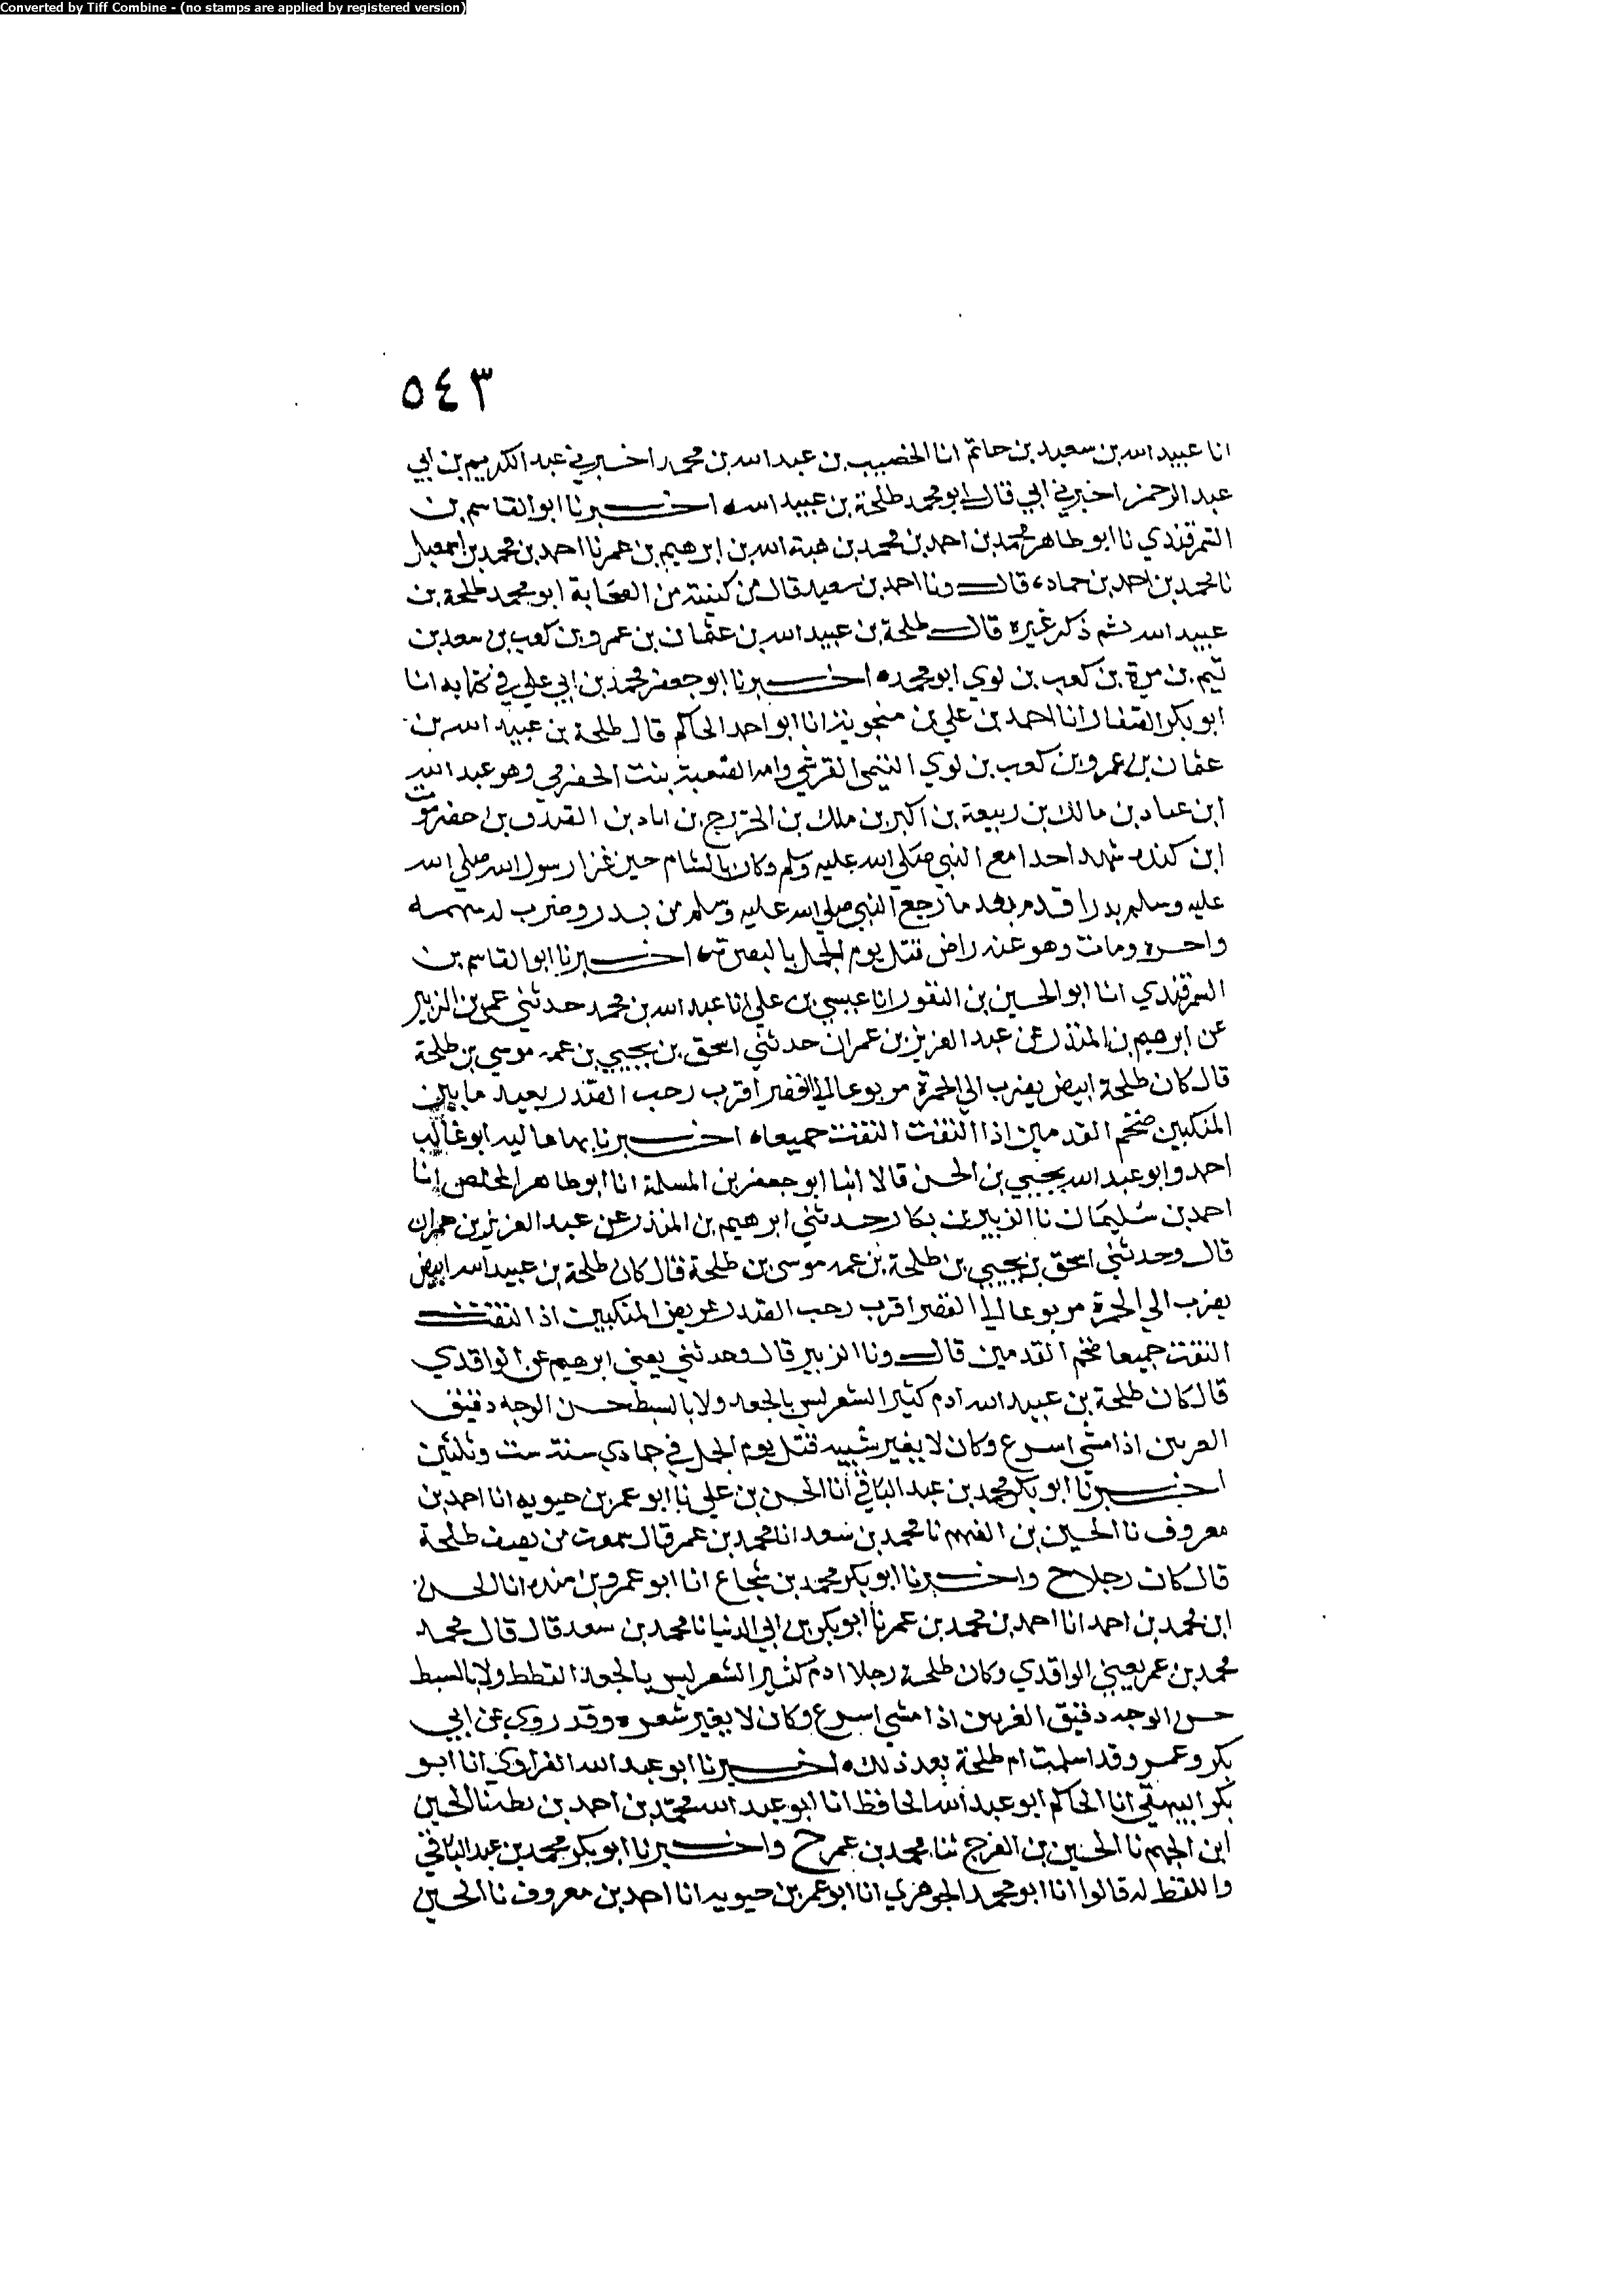 Converted by Tiff Combine - (no stamps are applied by registered version)
٥٤٣
انا عبيد الله بن سعيد بن حاتم انا الخصيب بن عبد الله بن محمد اخبرني عبد الكريم بن ابي
عبد الرحمن اخبرني ابي قال ابو محمد طلحة بن عبيد الله اخبرنا ابو القاسم بن
السمرقندي نا ابو طاهر محمد بن احمد بن محمد بن هبة الله بن ابرهيم بن عمر نا احمد بن محمد بن اسمعيل
نا محمد بن احمد بن حماد قال ونا احمد بن سعيد قال من كنيته من الصحابة ابو محمد طلحة بن
عبيد الله ثم ذكر غيره قال طلحة بن عبيد الله بن عثمان بن عمرو بن كعب بن سعد بن
تيم بن مرة بن كعب بن لوي ابو محمد ه اخبرنا ابو جعفر محمد بن ابي علي في كتابه انا
ابو بكر الصفار انا احمد بن علي بن منجويه انا ابو احمد الحاكم قال طلحة بن عبيد الله بن
عثمان بن عمرو بن كعب بن لوي التيمي القرشي وامه الصعبة بنت الحضرمي وهو عبد الله
ابن عباد بن مالك بن ربيعة بن اكبر بن ملك بن الخزرج بن اياد بن الصدف بن حضرموت
ابن كنده شهد احدا مع النبي صلى الله عليه وسلم وكان بالشام حين غزا رسول الله صلي الله
عليه وسلم بدرا قدم بعد ما رجع النبي صلي الله عليه وسلم من بدر وضرب له بسهمه
واجره ومات وهو عنه راض قتل يوم الجمل بالبصرة ه اخبرنا ابو القاسم بن
السمرقندي انا ابو الحسين بن النقور انا عيسي بن علي انا عبد الله بن محمد حدثني عمي بن الزبير
عن ابرهيم بن المنذر عن عبد العزيز بن عمران حدثني اسحق بن يحيي بن عمه موسي بن طلحة
قال كان طلحة ابيض يضرب الي الحمرة مربوعا الي القصر اقرب رحب الصدر بعيد ما بين
المنكبين ضخم القدمين اذا التفت التفت جميعا ه اخبرنا بها عاليه ابو غالب
احمد وابو عبد الله يحيي بن الحسن قالا انبا ابو جعفر بن المسلمة انا ابو طاهر المخلص انا
احمد بن سليمان نا الزبير بن بكار حدثني ابرهيم بن المنذر عن عبد العزيز بن عمران
قال وحدثني اسحق بن يحيي بن طلحة بن عمه موسى بن طلحة قال كان طلحة بن عبيد الله ابيض
يضرب الي الحمرة مربوعا الي القصر اقرب رحب الصدر عريض المنكبين اذا التفت
التفت جميعا ضخم القدمين قال ونا الزبير قال وحدثني يعني ابرهيم عن الواقدي
قال كان طلحة بن عبيد الله ادم كثير الشعر ليس بالجعد ولا بالسبط حسن الوجه دقيق
العرنين اذا مشي اسرع وكان لا يغير شيبه قتل يوم الجمل في جمادي سنة ست وثلثين
اخبرنا ابو بكر محمد بن عبد الباقي انا الحسن بن علي نا ابو عمر بن حيويه انا احمد بن
معروف نا الحسين بن الفهم نا محمد بن سعد انا محمد بن عمر قال سمعت من يصف طلحة
قال كان رجلا ح واخبرنا ابو بكر محمد بن شجاع انا ابو عمرو بن منده انا الحسن
ابن محمد بن احمد انا احمد بن محمد بن عمر نا ابو بكر بن ابي الدنيا نا محمد بن سعد قال قال محمد
محمد بن عمر يعني الواقدي وكان طلحة رجلا ادم كثير الشعر ليس بالجعد القطط ولا بالسبط
حسن الوجه دقيق العرنين اذا مشي اسرع وكان لا يغير شعره وقد روي عن ابي
بكر وعمر وقد اسلمت ام طلحة بعد ذلك ه اخبرنا ابو عبد الله الفراوي انا ابو
بكر البيهقي انا الحاكم ابو عبد الله الحافظ انا ابو عبد الله محمد بن احمد بن بطه نا الحسن
ابن الجهم نا الحسين بن الفرج ثنا محمد بن عمر ح واخبرنا ابو بكر محمد بن عبد الباقي
واللفظ له قالوا انا ابو محمد الجوهري انا ابو عمر بن حيويه انا احمد بن معروف نا الحسين